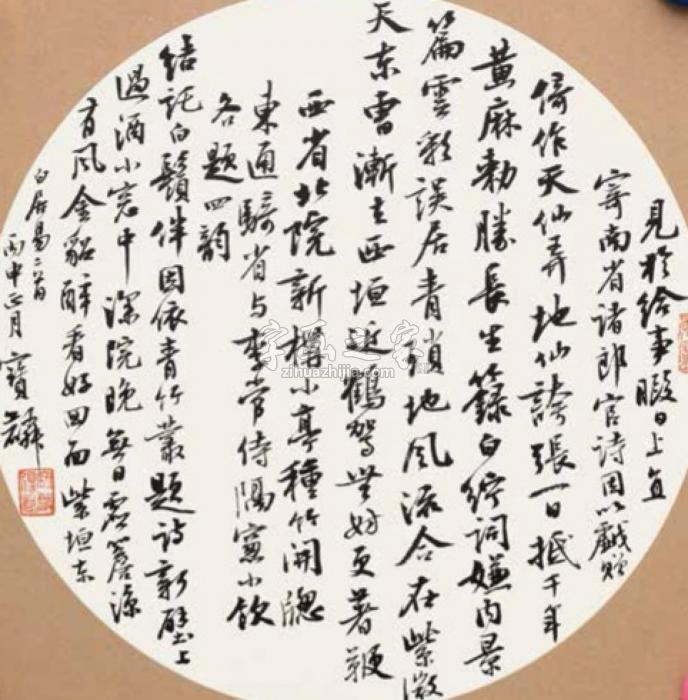 見於給事暇日上直
寄南省諸郎官詩因以戲贈
倚作天仙弄地仙誇張一日抵千年
黄麻勅勝長生籙白紵詞嫌内景
篇雲彩誤居青瑣地風流合在紫微
天東曹漸去西垣近鶴駕無妨更著鞭
西省北院新構小亭種竹開牕
東通騎省與李常侍隔窻小飲
各題四韻
結託白鬚伴因依青竹叢題詩新壁上
過酒小窻中深院晚無日虛簷涼
有風金貂醉看好回首紫垣東
白居易二首
丙申正月寶麟
字画之家
zihuazhijia.com